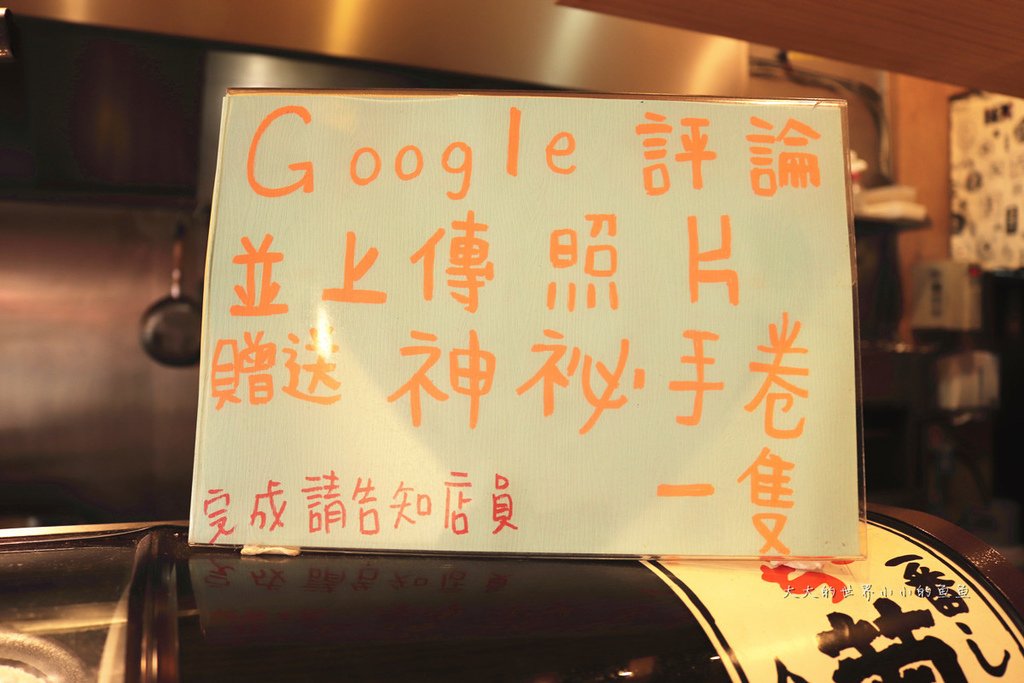 Google 評論
並上傳照片
贈送 神祕手卷
一隻
完成請告知店員
大大的世界小小的魚魚
一番